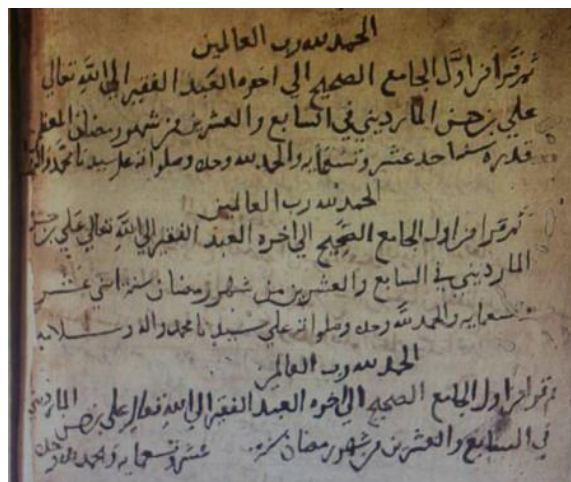 الحمد لله رب العالمين
ثم قرا من اول الجامع الصحيح الي اخره العبد الفقير الي الله تعالي
علي بن حسن المارديني في السابع والعشرين من شهور رمضان المعظم
قدره سنه احد عشر وتسعمايه والحمد لله وحده وصلواته علي سيدنا محمد واله
الحمد لله رب العالمين
ثم قرا من اول الجامع الصحيح الي اخره العبد الفقير الي الله تعالي علي بن حسن
المارديني في السابع والعشرين من شهور رمضان سنه اثني عشر
وتسعمايه والحمد لله وحده وصلواته علي سيدنا محمد واله وسلامه
الحمد لله رب العالمين
ثم قرا من اول الجامع الصحيح الي اخره العبد الفقير الي الله تعالي علي بن حسن المارديني
في السابع والعشرين من شهور رمضان سنه عشر وتسعمايه والحمد لله وحده